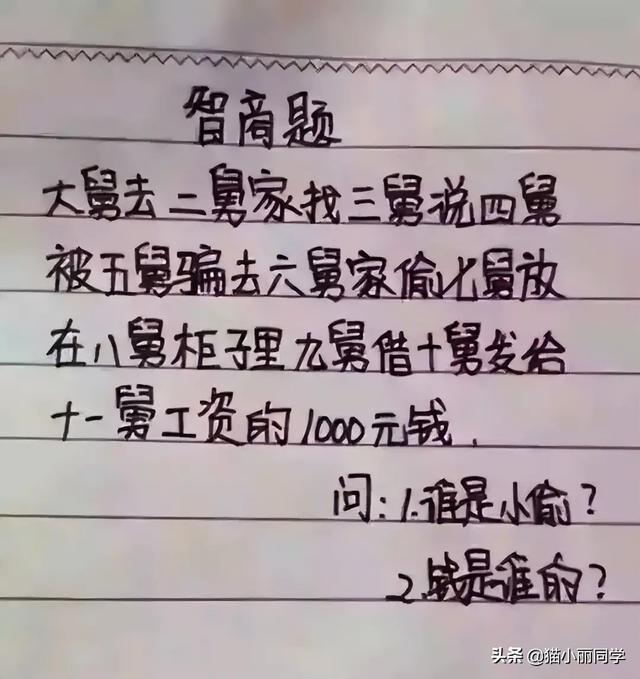 智商题
大舅去二舅家找三舅说四舅
被五舅骗去六舅家偷七舅放
在八舅柜子里九舅借十舅发给
十一舅工资的1000元钱.
问:1.谁是小偷?
2.钱是谁的?
头条@猫小丽同学